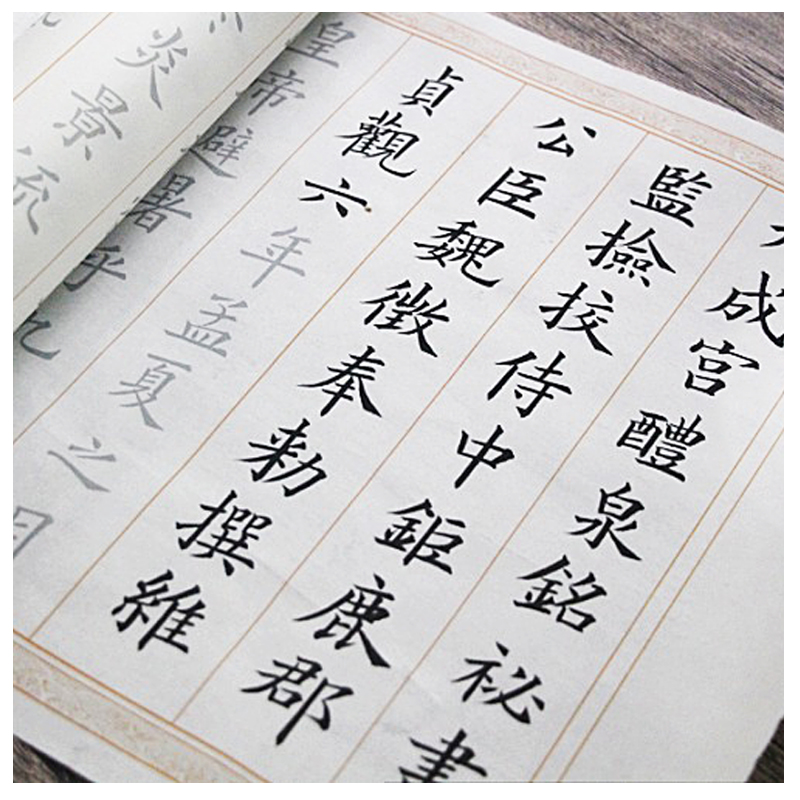 成宮醴泉銘祕書
監撿挍侍中鉅鹿郡
公臣魏徵奉勅撰維
貞觀六年孟夏之月
皇帝避暑乎九
炎景流